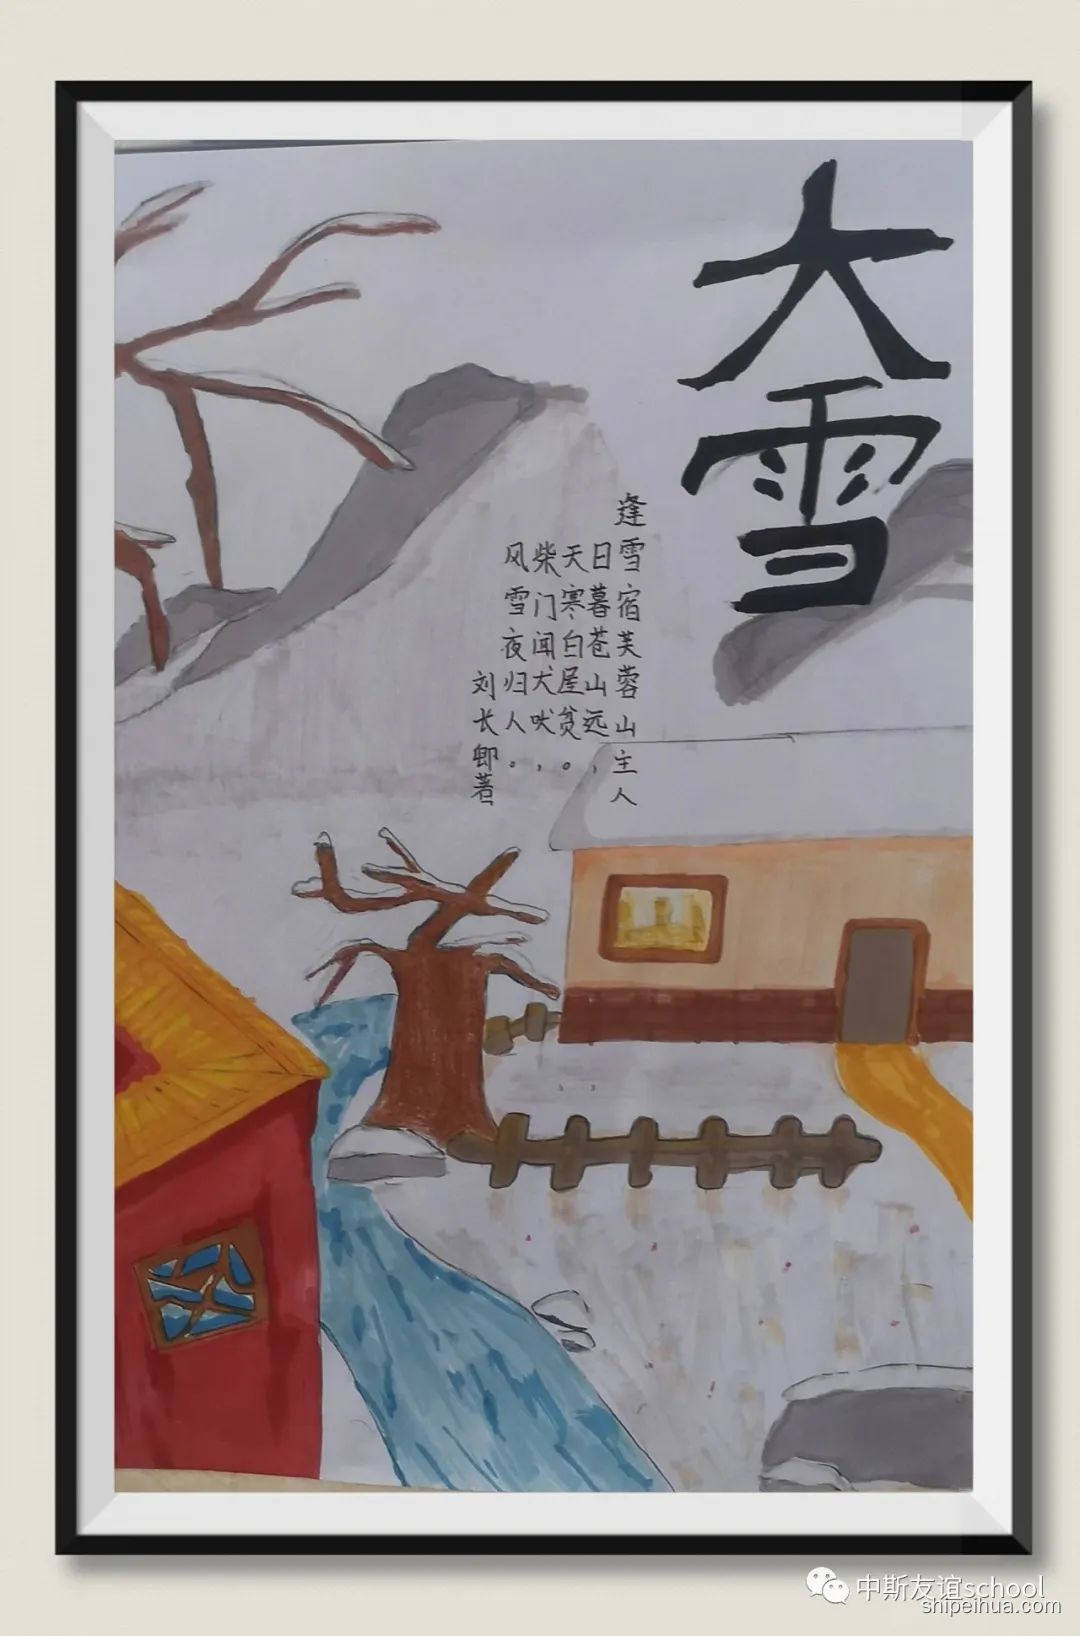 大雪
逢雪宿芙蓉山主人
日暮苍山远，
天寒白屋贫。
柴门闻犬吠，
风雪夜归人。
刘长卿著
中斯友谊school
shipeihua.com